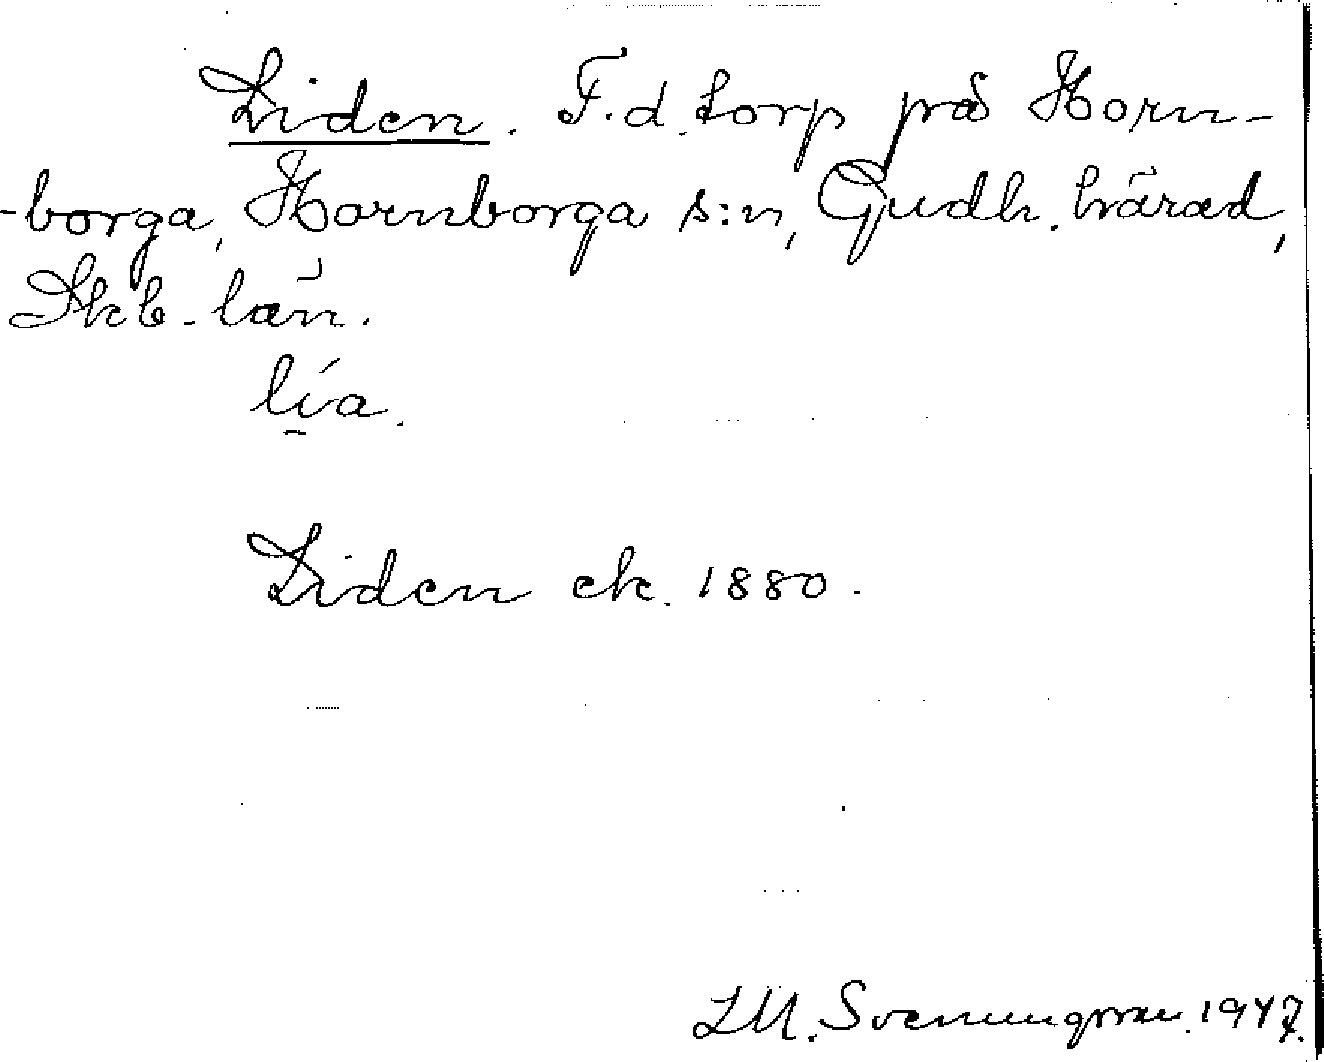 Liden. F.d. torp på Horn-
-borga, Hornborga s:n, Gudh. härad,
Skb. län.
lía.
Liden ek. 1880.
LM. Svenungsson. 1947.